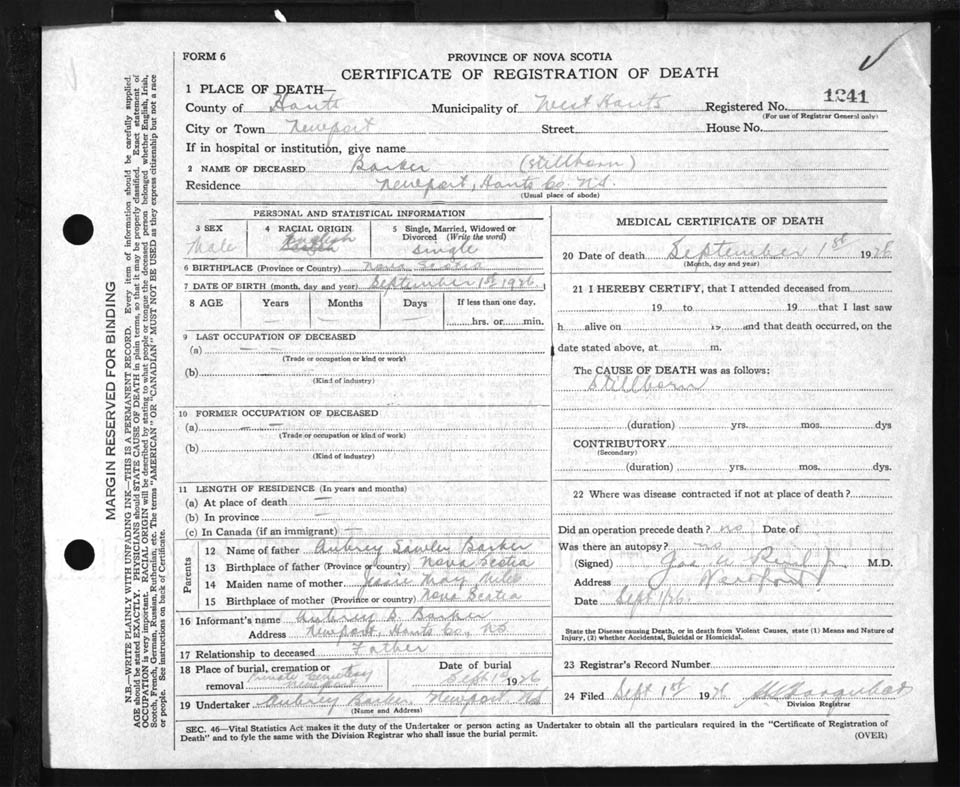 FORM 6
PROVINCE OF NOVA SCOTIA
CERTIFICATE OF REGISTRATION OF DEATH
1 PLACE OF DEATH—
County of Hants Municipality of West Hants Registered No. 1241
(For use of Registrar General only)
City or Town Newport Street House No.
If in hospital or institution, give name
2 NAME OF DECEASED Barker (Stillborn)
Residence Newport, Hants Co. N.S.
(Usual place of abode)
PERSONAL AND STATISTICAL INFORMATION
3 SEX Male
4 RACIAL ORIGIN English
5 Single, Married, Widowed or Divorced (Write the word) Single
6 BIRTHPLACE (Province or Country) Nova Scotia
7 DATE OF BIRTH (month, day and year) September 1st 1926
8 AGE Years Months Days If less than one day.
hrs. or min.
9 LAST OCCUPATION OF DECEASED
(a) — —
(Trade or occupation or kind or work)
(b)
(Kind of industry)
10 FORMER OCCUPATION OF DECEASED
(a) — —
(Trade or occupation or kind of work)
(b)
(Kind of industry)
11 LENGTH OF RESIDENCE (In years and months)
(a) At place of death —
(b) In province —
(c) In Canada (if an immigrant) —
Parents
12 Name of father Aubrey Barker
13 Birthplace of father (Province or country) Nova Scotia
14 Maiden name of mother May
15 Birthplace of mother (Province or country) Nova Scotia
16 Informant's name Aubrey Barker
Address Newport, Hants Co., N.S
17 Relationship to deceased Father
18 Place of burial, cremation or removal Private Cemetery Newport
Date of burial Sept 1st 1926
19 Undertaker Aubrey Barker, Newport N.S
(Name and Address)
MEDICAL CERTIFICATE OF DEATH
20 Date of death September 1st 1926
(Month, day and year)
21 I HEREBY CERTIFY, that I attended deceased from
19 to 19 that I last saw
h alive on 19 and that death occurred, on the
date stated above, at m.
The CAUSE OF DEATH was as follows:
Stillborn
(duration) yrs. mos. dys
CONTRIBUTORY
(Secondary)
(duration) yrs. mos. dys.
22 Where was disease contracted if not at place of death?
Did an operation precede death? no Date of
Was there an autopsy? no
(Signed) M.D.
Address Newport
Date Sept 1/26
State the Disease causing Death, or in death from Violent Causes, state (1) Means and Nature of
Injury, (2) whether Accidental, Suicidal or Homicidal.
23 Registrar's Record Number
24 Filed Sept 1st 1926
Division Registrar
SEC. 46—Vital Statistics Act makes it the duty of the Undertaker or person acting as Undertaker to obtain all the particulars required in the "Certificate of Registration of
Death" and to fyle the same with the Division Registrar who shall issue the burial permit.
(OVER)
MARGIN RESERVED FOR BINDING
N.B.—WRITE PLAINLY WITH UNFADING INK—THIS IS A PERMANENT RECORD. Every item of information should be carefully supplied.
AGE should be stated EXACTLY. PHYSICIANS should STATE CAUSE OF DEATH in plain terms, so that it may be properly classified. Exact statement of
OCCUPATION is very important. RACIAL ORIGIN will be described by stating to what people or tongue the deceased person belonged whether English, Irish,
Scotch, French, German, Russian, Ruthenian, etc. The terms "AMERICAN" OR "CANADIAN" MUST NOT BE USED as they express citizenship but not a race
or people. See instructions on back of Certificate.